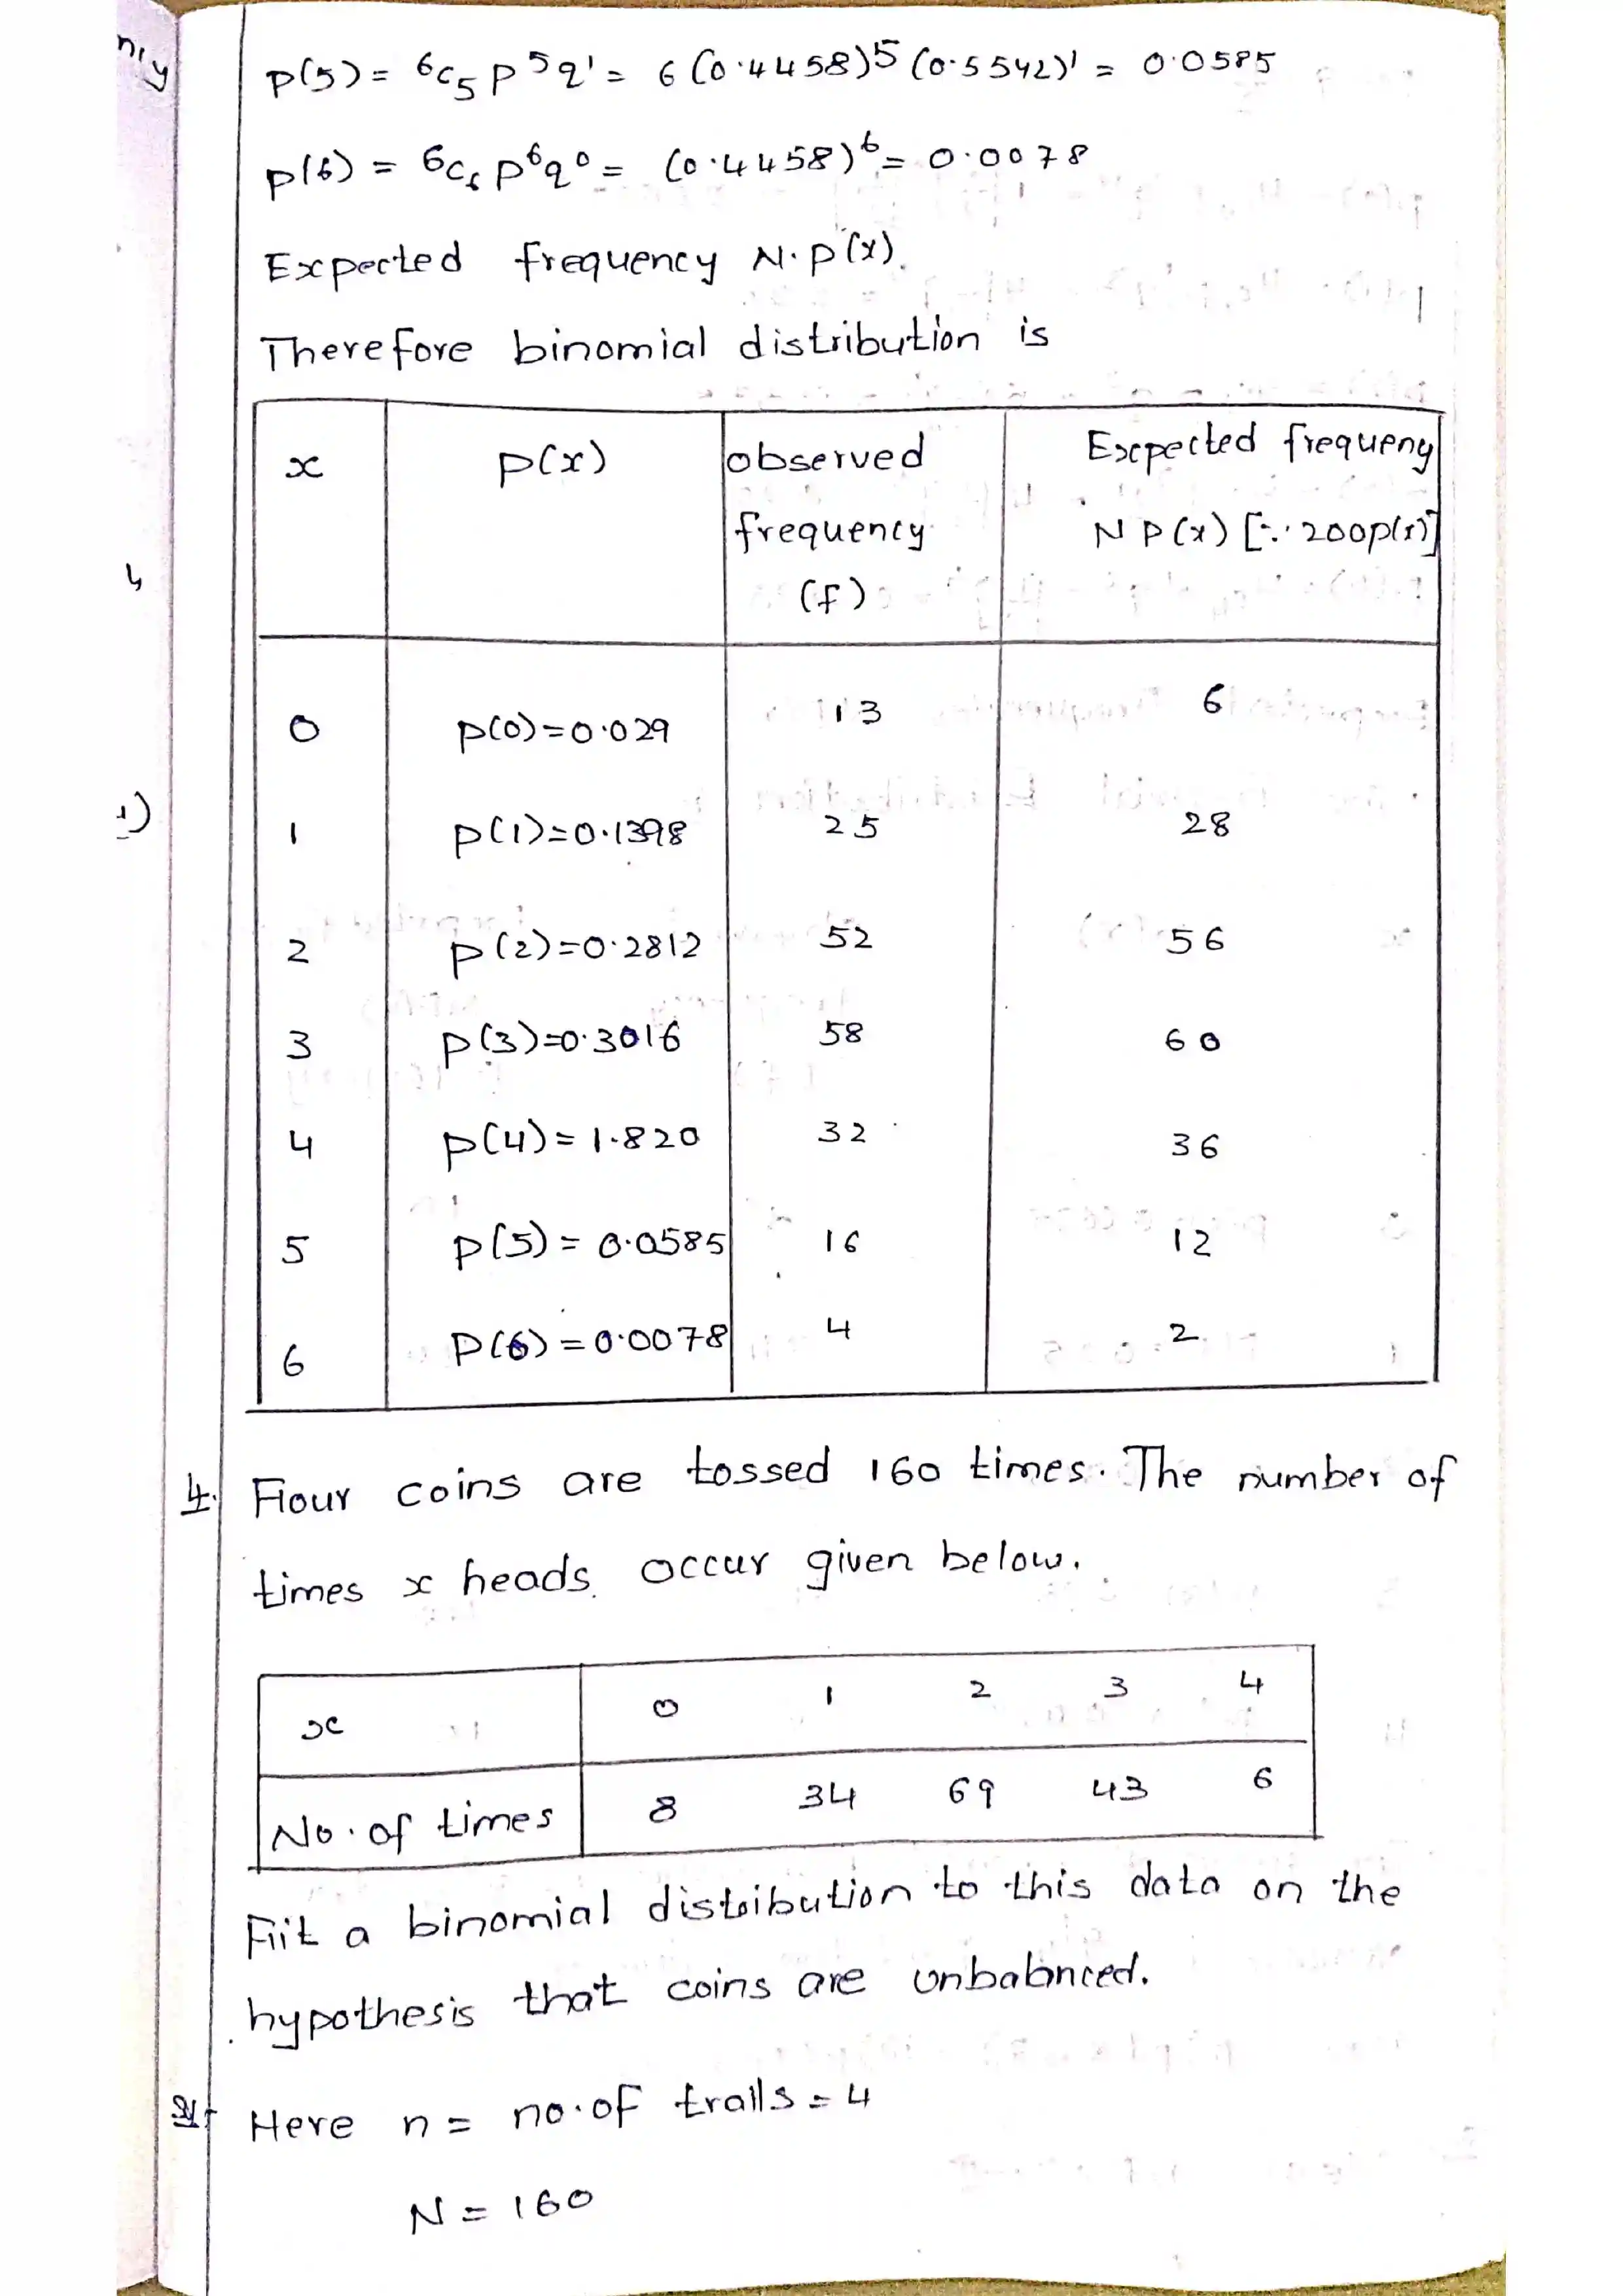 p(5) = 6c5 p5q1 = 6 (0.4458)5 (0.5542)1 = 0.0585
p(6) = 6c6 p6q0 = (0.4458)6 = 0.0078
Expected frequency N.p(x).
Therefore binomial distribution is
x p(x) observed frequency (f) Expected frequeny NP(x) [∵ 200p(x)]
0 p(0)=0.029 13 6
1 p(1)=0.1398 25 28
2 p(2)=0.2812 52 56
3 p(3)=0.3016 58 60
4 p(4)=1.820 32 36
5 p(5)=0.0585 16 12
6 p(6)=0.0078 4 2
4. Four coins are tossed 160 times. The number of
times x heads occur given below.
x 0 1 2 3 4
No. of times 8 34 69 43 6
Fit a binomial distribution to this data on the
hypothesis that coins are unbalanced.
Here n = no. of trails = 4
N = 160